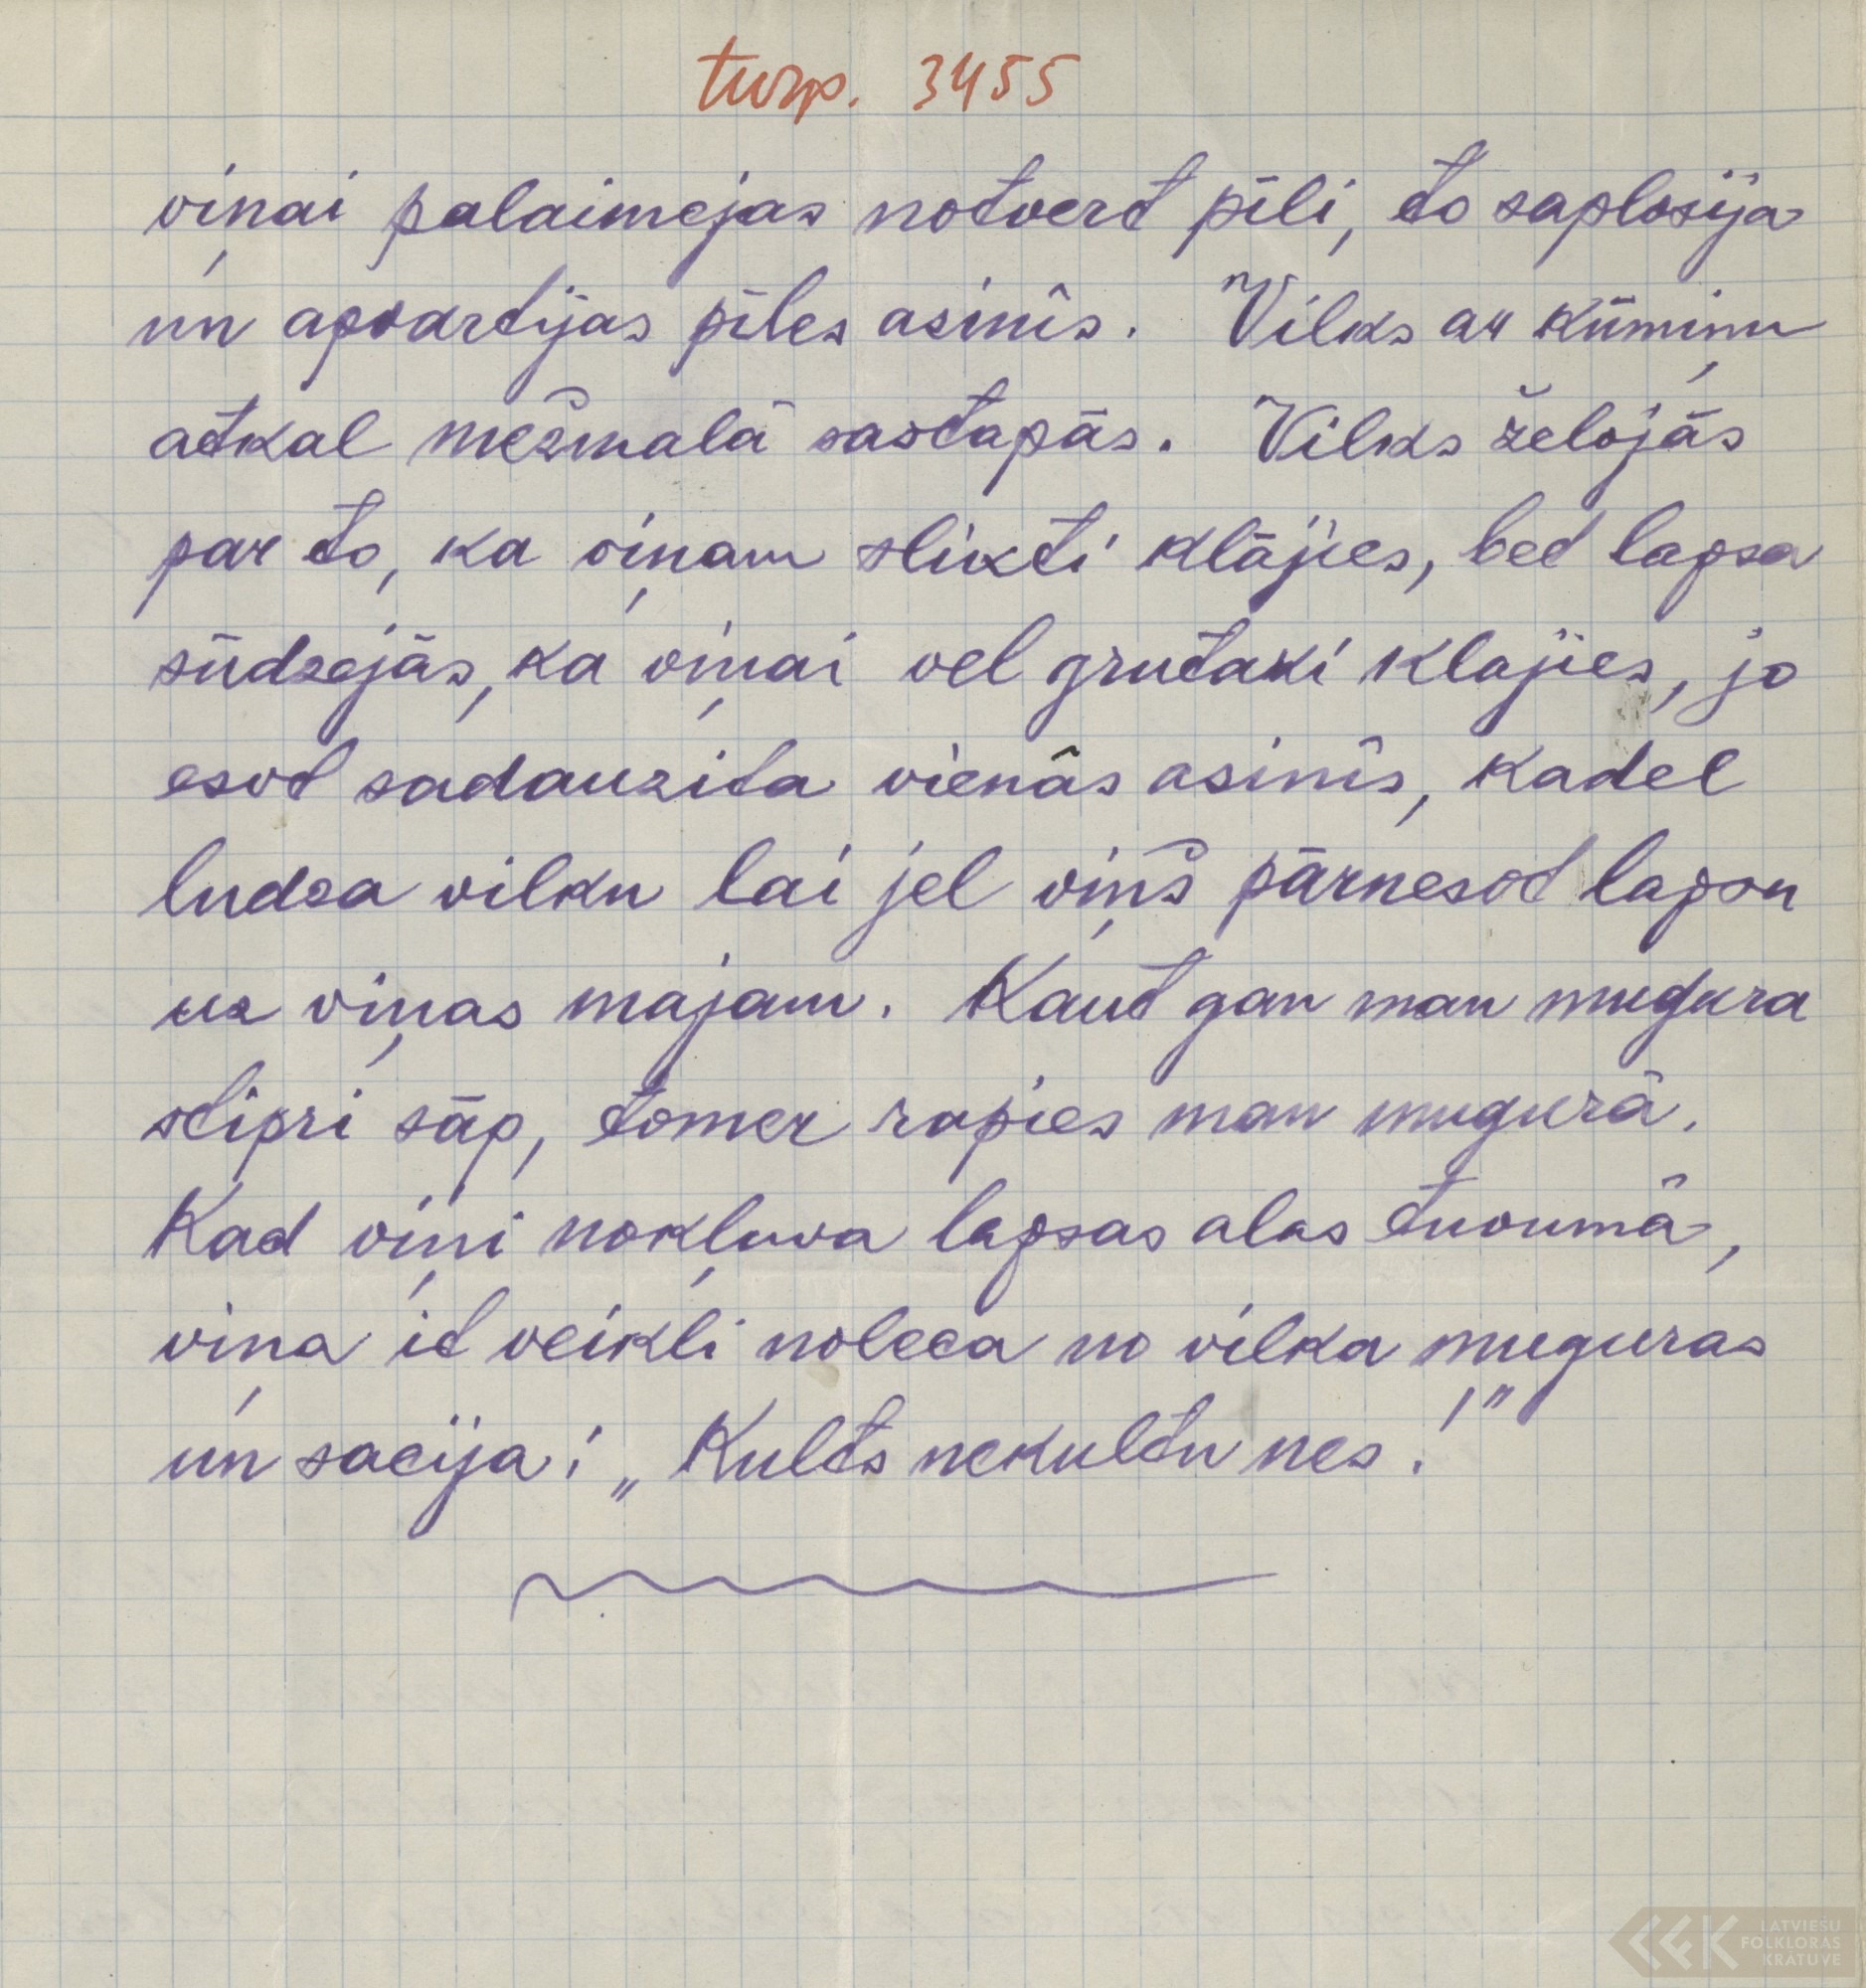 turp. 3455
viņai palaimejas notvert pīli, to saplosija
un apvārtijas pīles asinîs. Vilks ar kūmiņu
atkal mežmalā sastapās. Vilks želojās
par to, ka viņam slikti klājies, bet lapsa
sūdzejās, ka viņai vel grutaki klajies, jo
esot sadauzita vienâs asinîs, kadel
ludza vilku lai jel viņš pārnesot lapsu
uz viņas majam. Kaut gan man mugura
stipri sāp, tomer rapies man mugurā.
Kad viņi nokļuva lapsas alas tuvumā,
viņa it veikli noleca no vilka muguras
un sacija: „Kults nekultu nes!"
LATVIEŠU
FOLKLORAS
KRĀTUVE